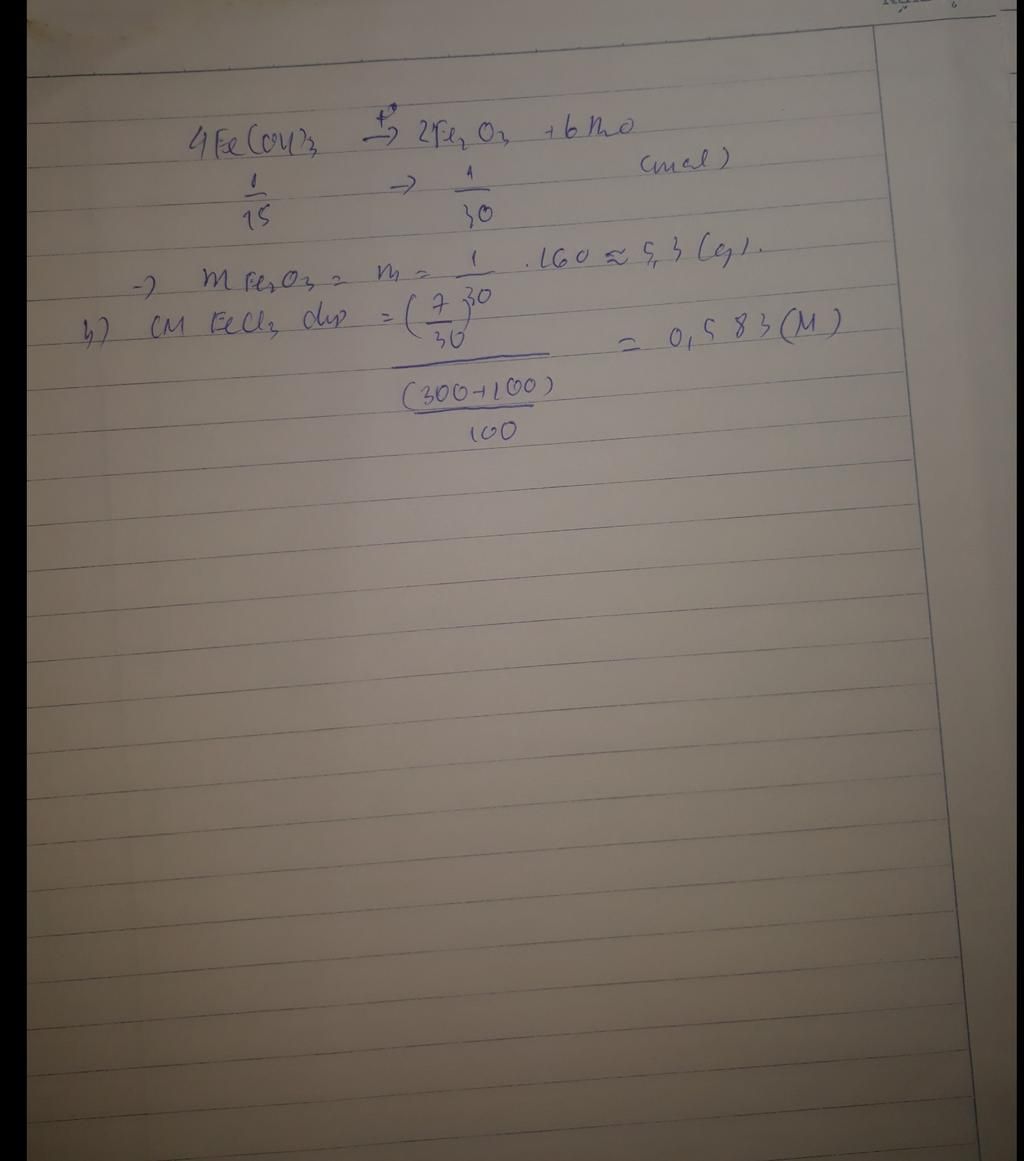 4Fe(OH)3 t° → 2Fe2O3 + 6H2O
1/15 → 1/30 (mol)
→ m Fe2O3 = m = 1/30 . 160 ≈ 5,3 (g).
b) CM FeCl3 dư = (7/30) / ((300+100)/100) = 0,583 (M)